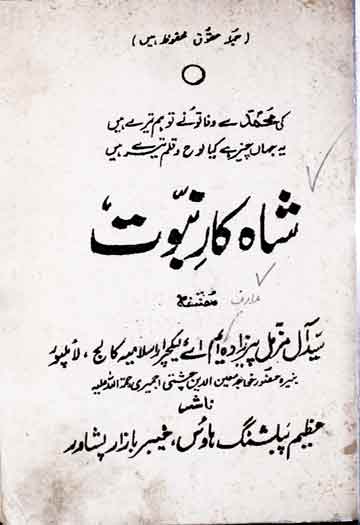 (جملہ حقوق محفوظ ہیں)
کی محمدؐ سے وفا تو نے تو ہم تیرے ہیں
یہ جہاں چیز ہے کیا لوح و قلم تیرے ہیں
شاہ کارِ نبوّت
مصنفہ
عارف
سیّد آل مزمل پیرزادہ ایم اے لیکچرار اسلامیہ کالج، لائلپور
نبیرہ حضور خواجہ معین الدین چشتی اجمیری رحمۃ اللہ علیہ
ناشر
عظیم پبلشنگ ہاؤس، خیبر بازار پشاور